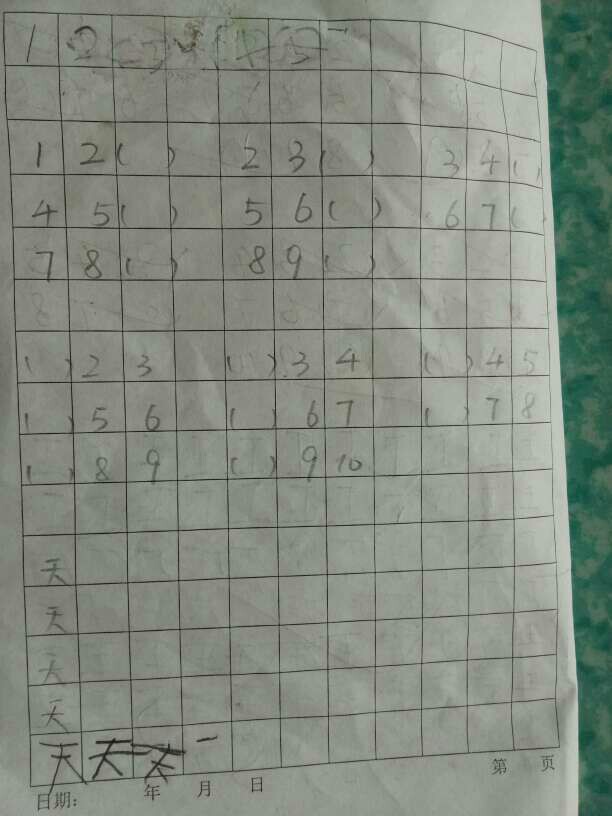 1 2
1 2 ( ) 2 3 ( ) 3 4 ( )
4 5 ( ) 5 6 ( ) 6 7 ( )
7 8 ( ) 8 9 ( )
( ) 2 3 ( ) 3 4 ( ) 4 5
( ) 5 6 ( ) 6 7 ( ) 7 8
( ) 8 9 ( ) 9 10
天
天
天
天
天 天 天 一
第 页
日期: 年 月 日